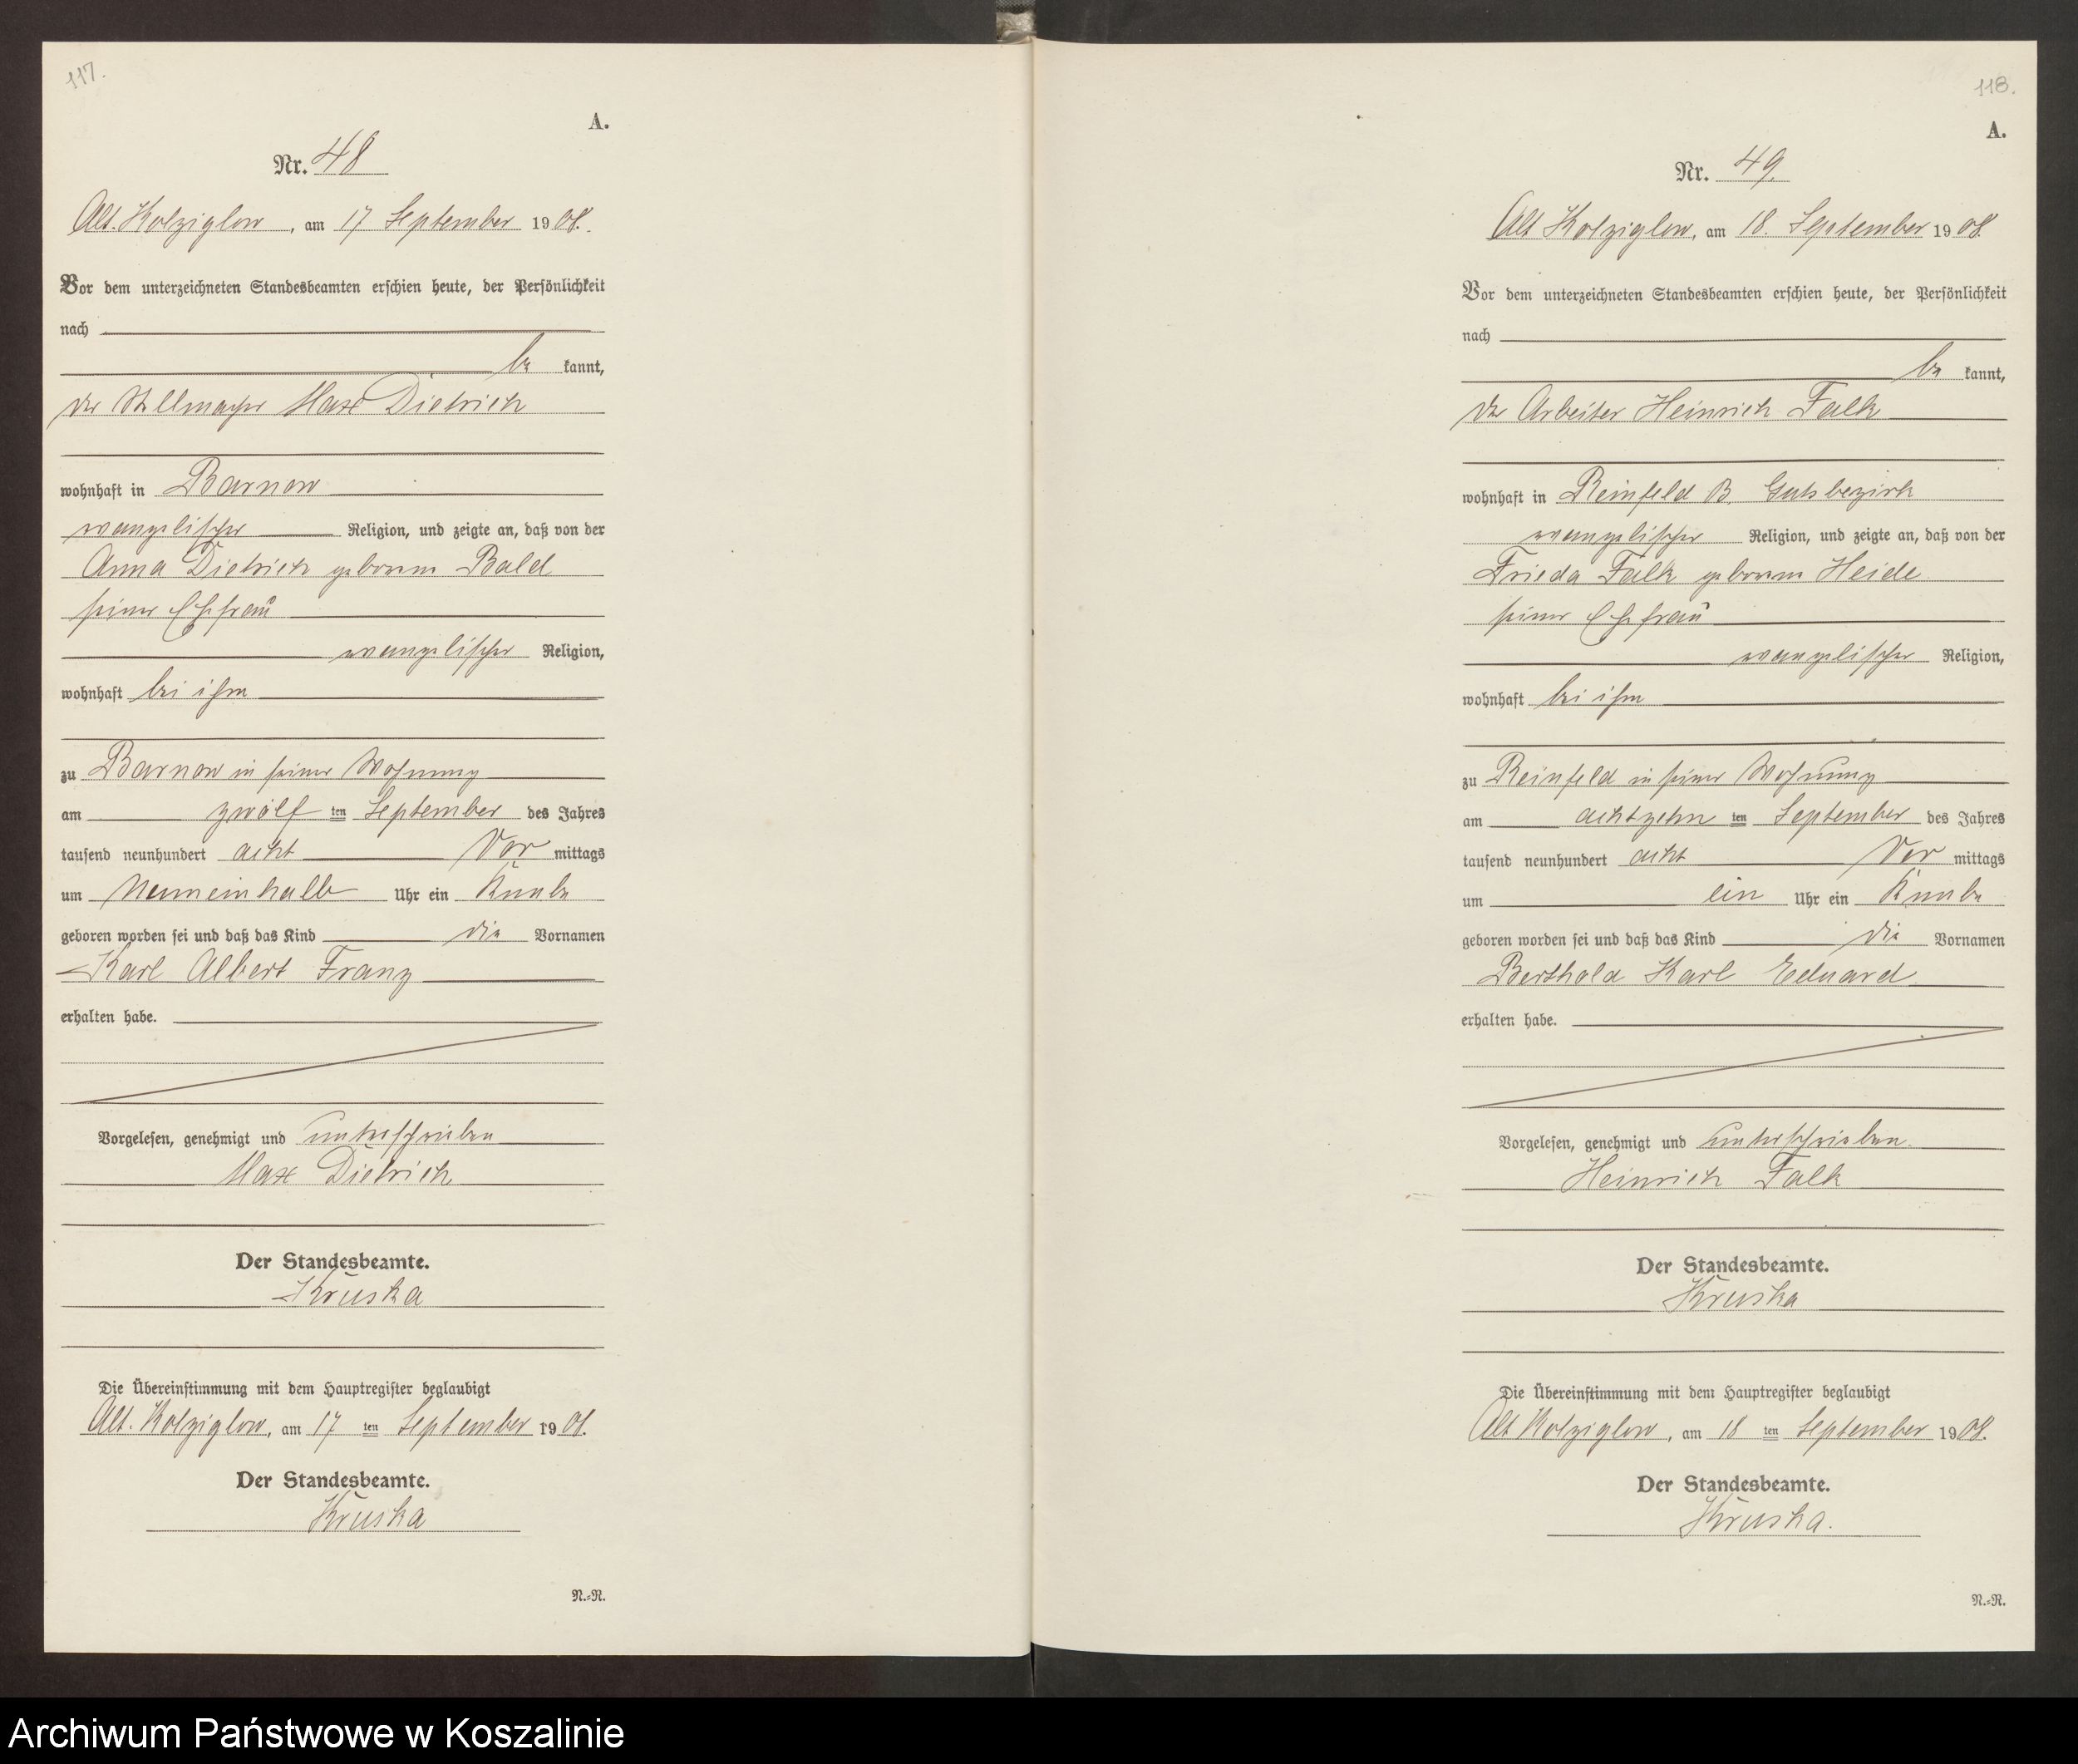 117.
A.
Nr. 48
Alt. Kolziglow, am 17 September 1908.
Vor dem unterzeichneten Standesbeamten erschien heute, der Persönlichkeit
nach
be kannt,
der Stellmacher Max Dietrich
wohnhaft in Barnow
evangelischer Religion, und zeigte an, daß von der
Anna Dietrich geborene Bald
seiner Ehefrau
evangelischer Religion,
wohnhaft bei ihm
zu Barnow in seiner Wohnung
am zwölf ten September des Jahres
tausend neunhundert acht Vor mittags
um Neuneinhalb Uhr ein Knabe
geboren worden sei und daß das Kind die Vornamen
Karl Albert Franz
erhalten habe.
Vorgelesen, genehmigt und unterschrieben
Max Dietrich
Der Standesbeamte.
Kruska
Die Übereinstimmung mit dem Hauptregister beglaubigt
Alt. Kolziglow, am 17 ten September 1908.
Der Standesbeamte.
Kruska
N.=R.
118.
A.
Nr. 49.
Alt Kolziglow, am 18. September 1908.
Vor dem unterzeichneten Standesbeamten erschien heute, der Persönlichkeit
nach
be kannt,
der Arbeiter Heinrich Falk
wohnhaft in Reinfeld B. Gutsbezirk
evangelischer Religion, und zeigte an, daß von der
Frieda Falk geborene Heide
seiner Ehefrau
evangelischer Religion,
wohnhaft bei ihm
zu Reinfeld in seiner Wohnung
am achtzehn ten September des Jahres
tausend neunhundert acht Vor mittags
um ein Uhr ein Knabe
geboren worden sei und daß das Kind die Vornamen
Berthold Karl Eduard
erhalten habe.
Vorgelesen, genehmigt und unterschrieben.
Heinrich Falk
Der Standesbeamte.
Kruska
Die Übereinstimmung mit dem Hauptregister beglaubigt
Alt Kolziglow, am 18 ten September 1908.
Der Standesbeamte.
Kruska.
N.=R.
Archiwum Państwowe w Koszalinie